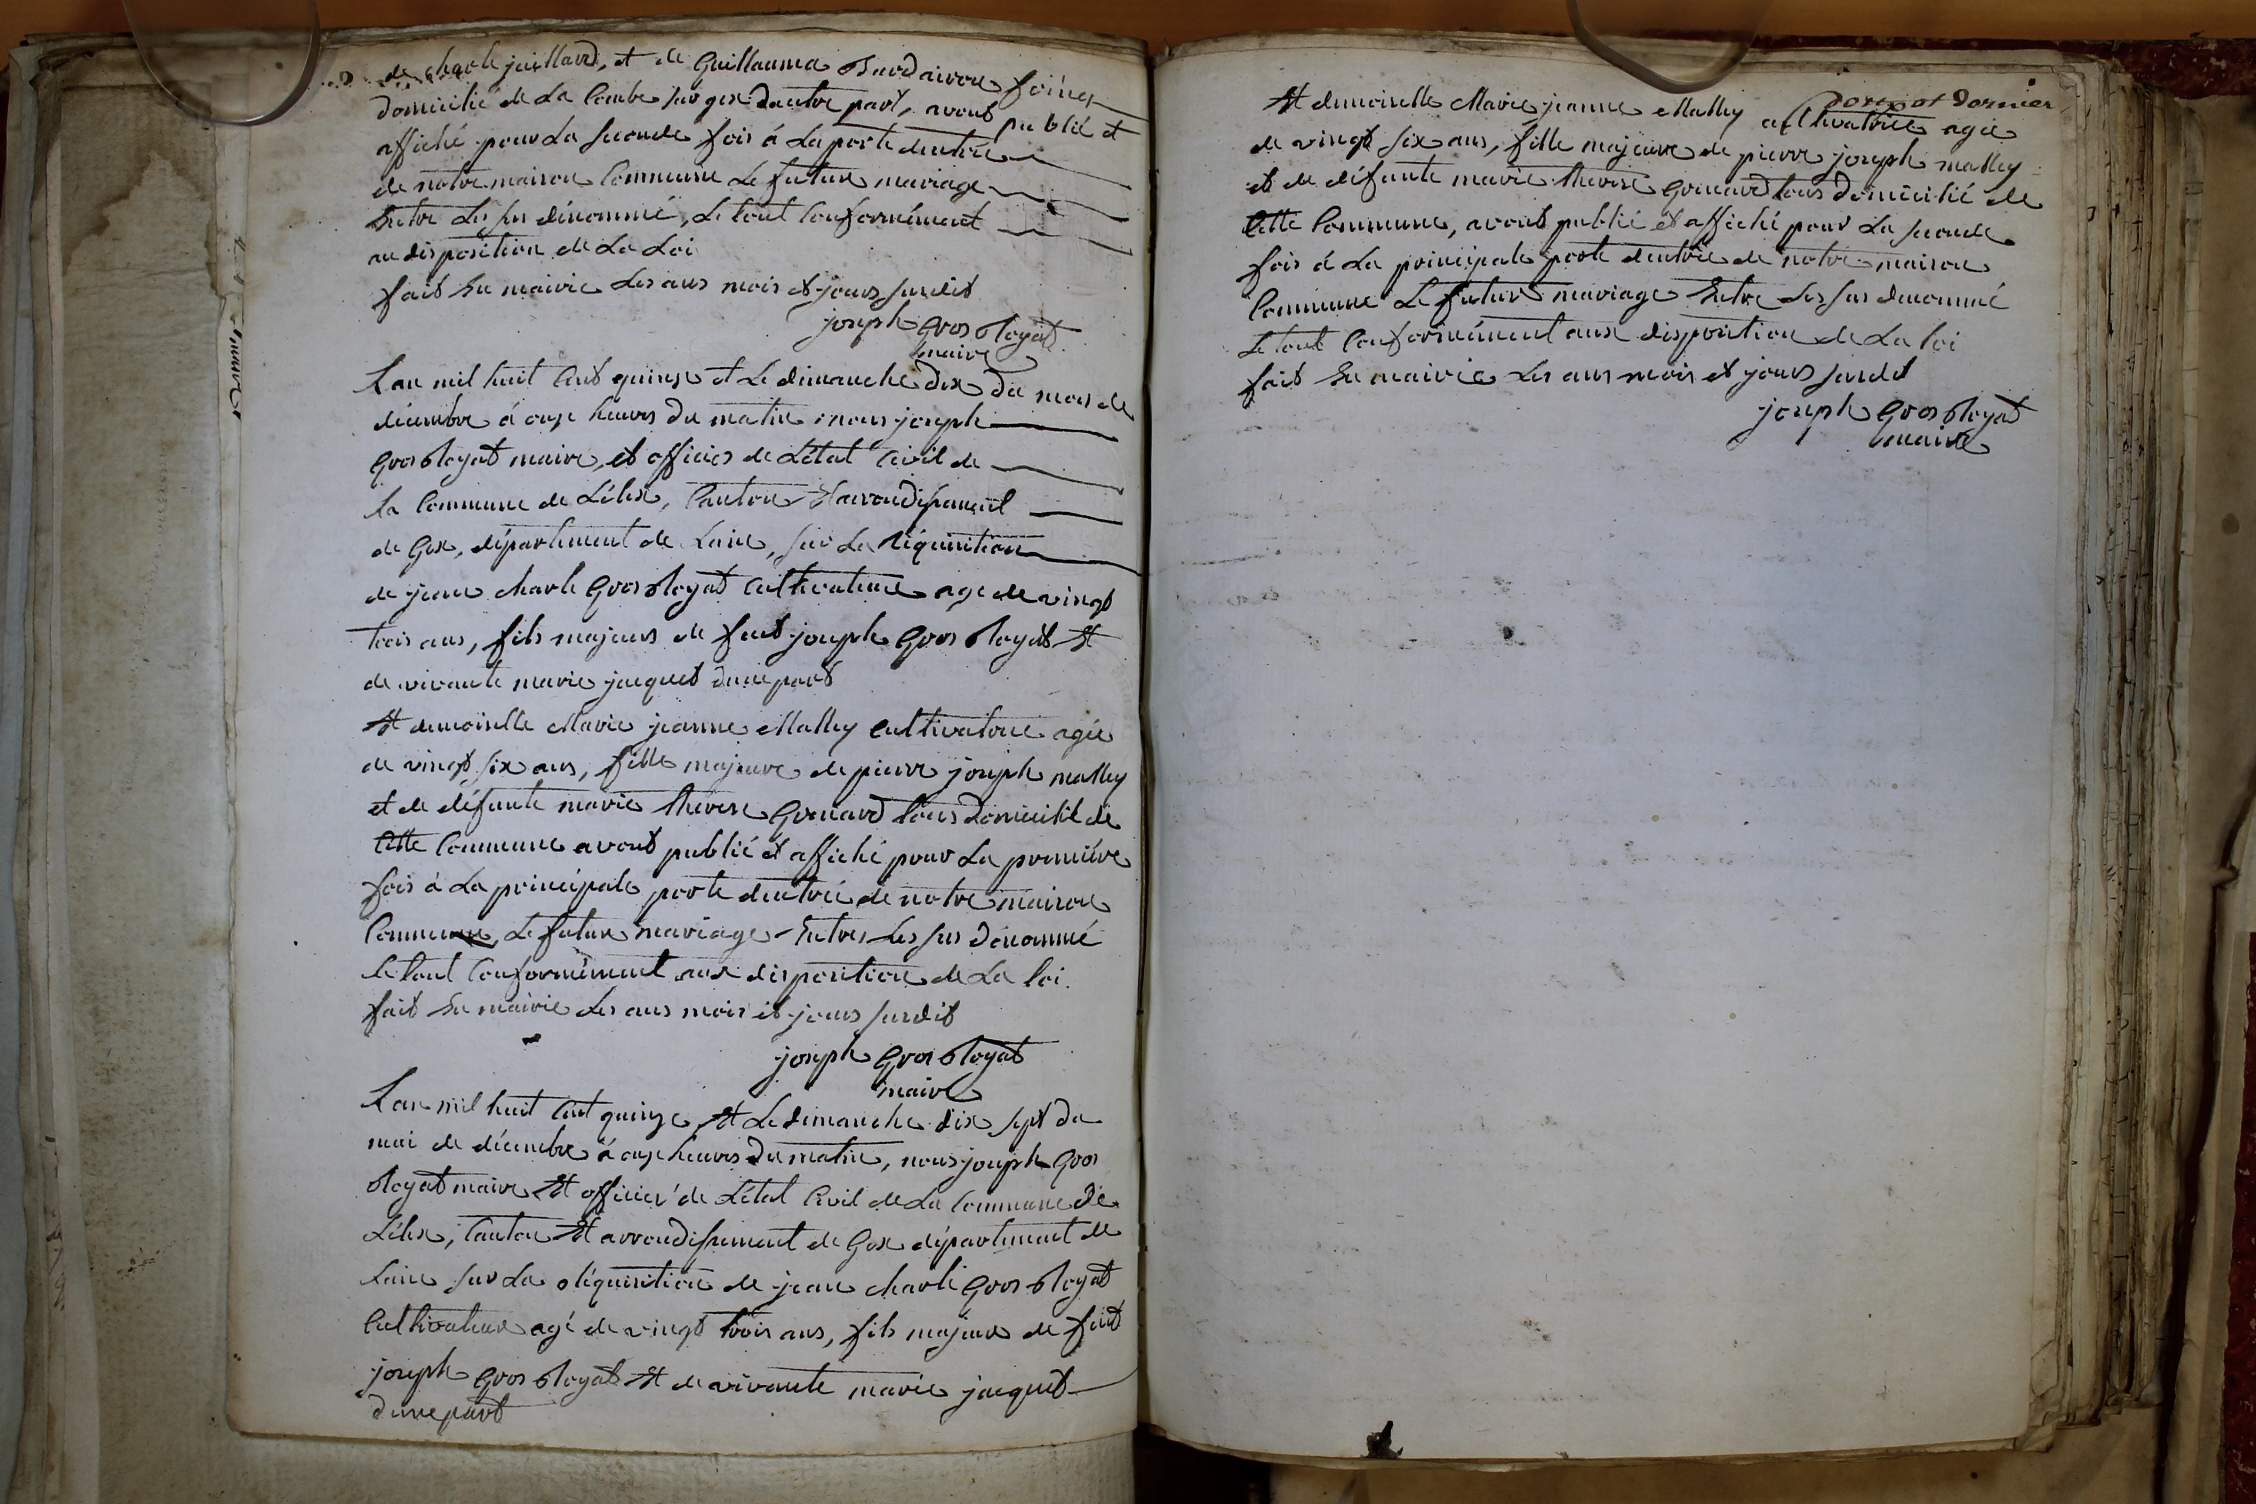 de charle juillard, et de Guillauma
domicilié de La Combe sur gex dautre part, avont publié et
affiché pour La seconde fois á La porte dentrée
de notre maison Commune Le future mariage
Entre Les sus dénommé, Le tout Conformément
au disposition de La Loi
fait En mairie Les ans mois et jours susdit
joseph Gros Royat
maire
Lan mil huit Cent quinze et Le dimanche dix du mois de
décembre á onze heures du matin nous joseph
Gros Royat maire, et officier de Létat Civil de
La Commune de Lélex, Canton Et arrondissement
de Gex, département de Lain, sur La réquisition
de jean charle Gros Royat Cultivateur age de vingt
trois ans, fils majeurs de feut joseph Gros Royat Et
de vivante marie jacquet dune part
Et demoiselle Marie jeanne Malley Cultivatrice agée
de vingt six ans, fille majeure de pierre joseph malley
et de défunte marie therese Grenard tous domicilié de
Cette Commune avont publié et affiché pour La première
fois á La principale porte dentrée de notre maison
Commune, Le future mariage Entres Les sus dénommé
Le tout Conformément aux disposition de La loi.
fait En mairie Les ans mois et jours susdit
joseph Gros Royat
maire
Lan mil huit Cent quinze Et Le dimanche dix sept du
moi de décembre á onze heures du matin, nous joseph Gros
Royat maire Et officier de Létat Civil de La Commune de
Lélex, Canton Et arrondissement de Gex département de
Lain sur La réquisition de jean charle Gros Royat
Cultivateur agé de vingt trois ans, fils majeur de feut
joseph Gros Royat Et de vivante marie jacquet
dune part
dernier
Et demoiselle Marie jeanne Malley cultivatrice agée
de vingt six ans, fille majeure de pierre joseph malley
et de défunte marie therese Grenard tous domicilié de
Cette Commune, avont publié et affiché pour La seconde
fois á La principale porte dentrée de notre maison
Commune Le future mariage Entre Les sus dénommé
Le tout Conformément aux disposition de La loi
fait En mairie Les ans mois et jours susdit
joseph Gros Royat
maire